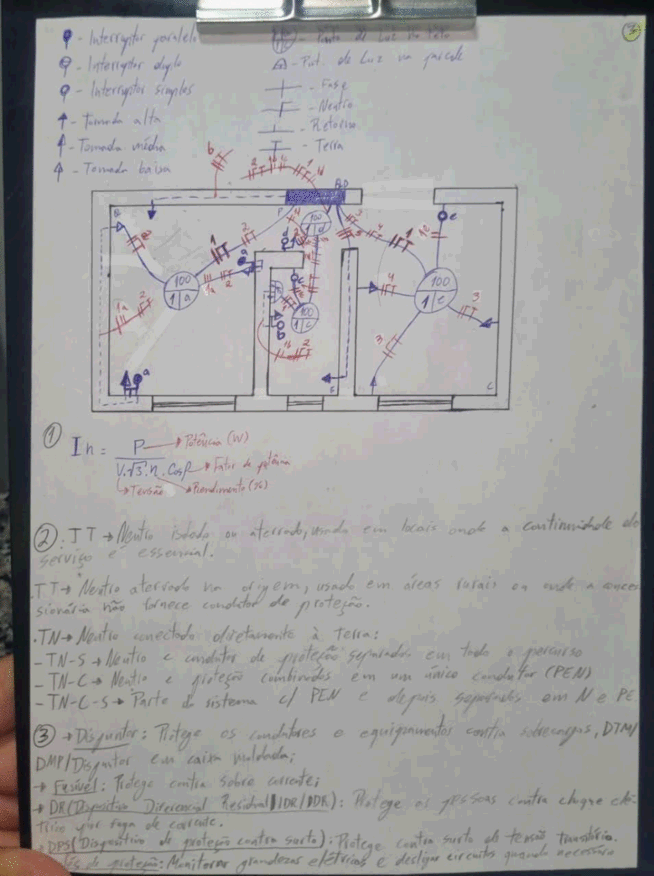 3
- Interruptor paralelo
- Interruptor duplo
- Interruptor simples
- Tomada alta
- Tomada média
- Tomada baixa
- Ponto de Luz no teto
- Pnt. de Luz na parede
- Fase
- Neutro
- Retorno
- Terra
QD
100
1 a
100
d
100
1 c
100
1 e
① In = P → Potência (W)
V.√3.η.Cosφ → Fator de potência
→ Tensão → Rendimento (%)
②. IT → Neutro isolado ou aterrado, usado em locais onde a continuidade do
serviço é essencial.
.TT → Neutro aterrado na origem, usado em áreas rurais ou onde a conces
sionária não fornece condutor de proteção.
.TN → Neutro conectado diretamente à terra:
- TN-S → Neutro e condutor de proteção separados em todo o percurso
- TN-C → Neutro e proteção combinados em um único condutor (PEN)
- TN-C-S → Parte do sistema c/ PEN e depois separados em N e PE
③ → Disjuntor: Protege os condutores e equipamentos contra sobrecargas, DTM/
DMP/Disjuntor em caixa moldada;
→ Fusível: Protege contra sobre corrente;
→ DR (Dispositivo Diferencial Residual/IDR/DDR): Protege as pessoas contra choque elé-
trico por fuga de corrente.
→ DPS (Dispositivo de proteção contra surto): Protege contra surto de tensão transitória.
de proteção: Monitorar grandezas elétricas e desligar circuitos quando necessário